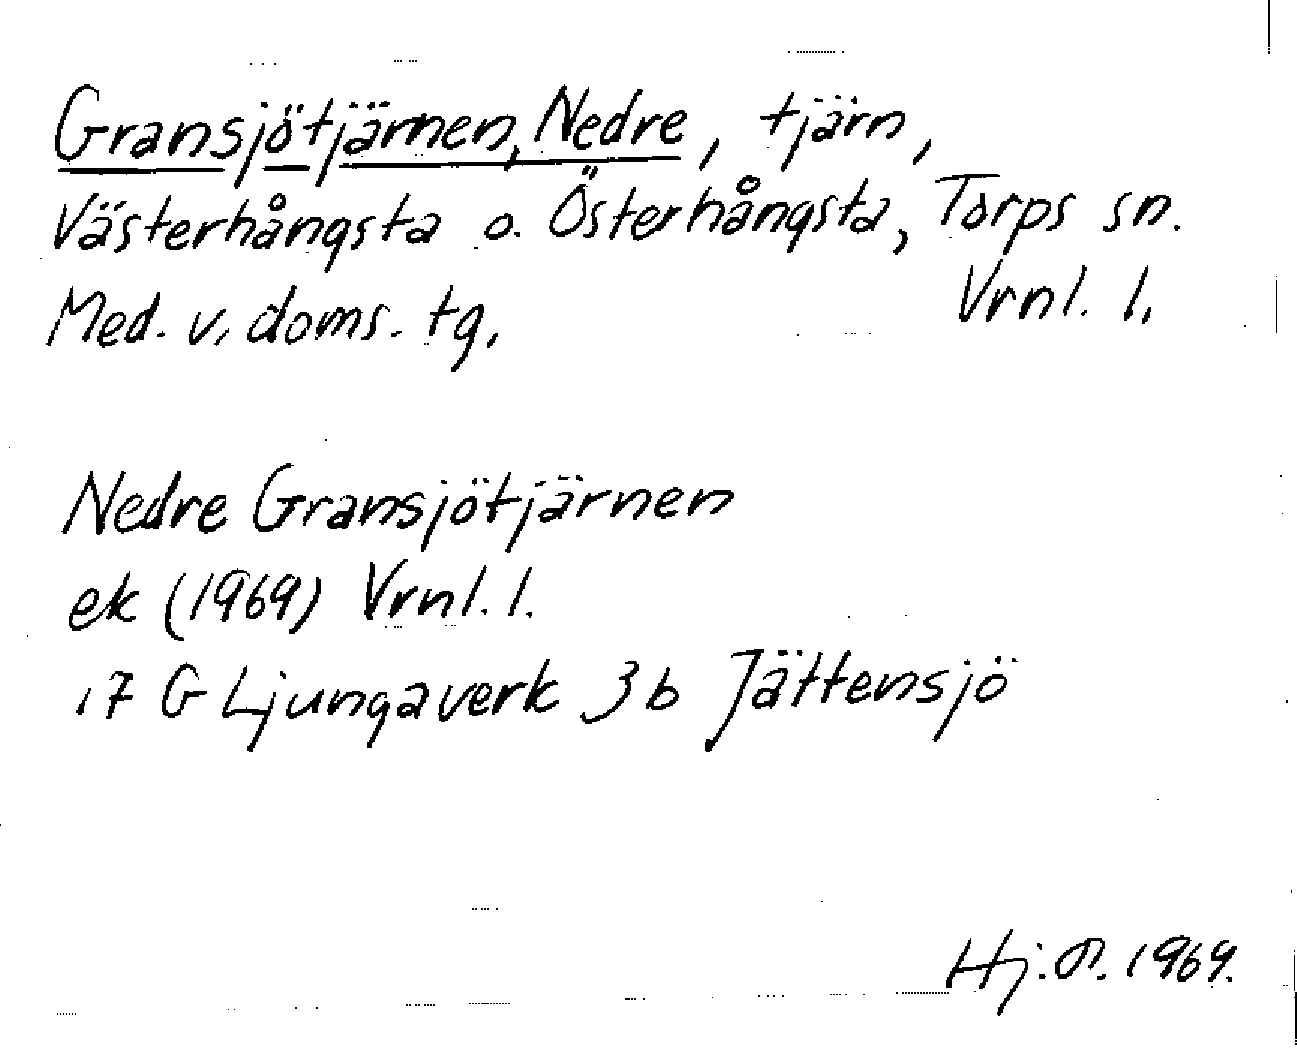 Gransjötjärnen, Nedre, tjärn,
Västerhångsta o. Österhångsta, Torps sn.
Med. v. doms. tg. Vrnl. l.
Nedre Gransjötjärnen
ek (1969) Vrnl. l.
17 G Ljungaverk 3b Jättensjö
Hj. 1969.